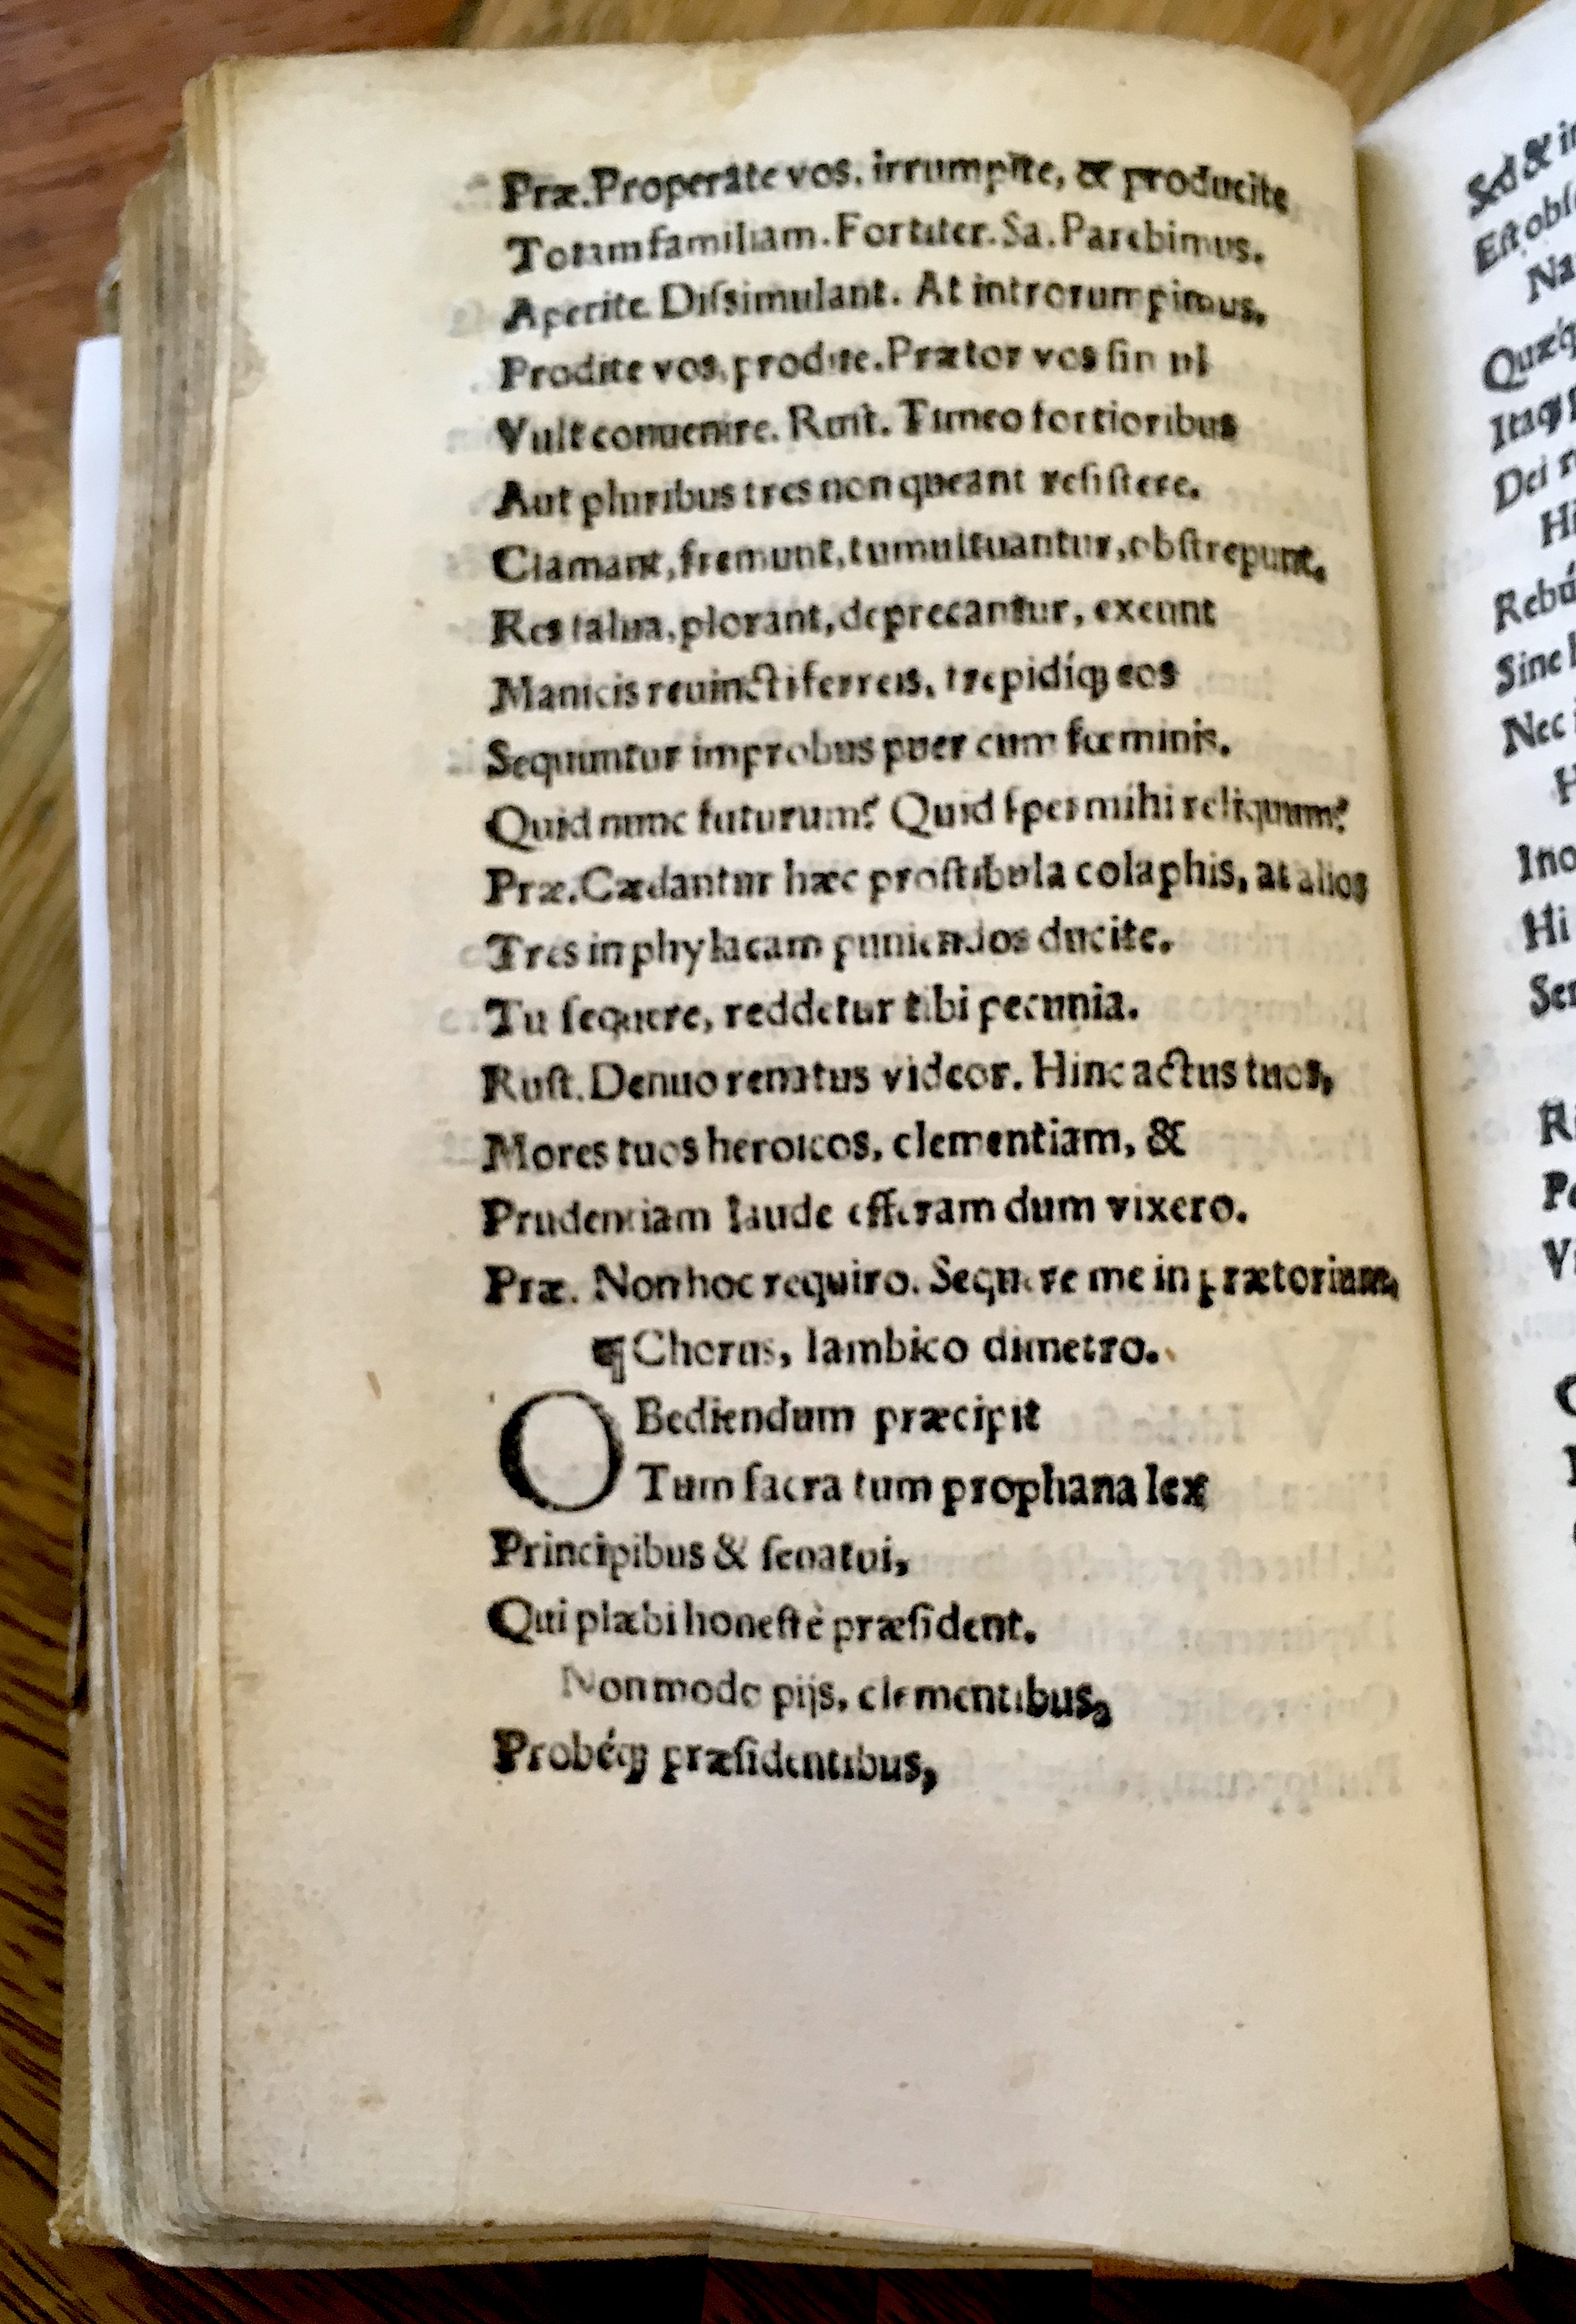 Præ. Properate vos, irrumpite, & producite
Totam familiam. Fortiter. Sa. Parebimus.
Aperite. Diſsimulant. At introrumpimus.
Prodite vos, prodite. Prætor vos ſimul
Vult conuenire. Ruit. Timeo fortioribus
Aut pluribus tres non queant reſiſtere.
Clamant, fremunt, tumultuantur, obſtrepunt.
Res ſalua, plorant, deprecantur, exeunt
Manicis reuincti ferreis, trepidíqꝫ eos
Sequuntur improbus puer cum fœminis.
Quid nunc futurum? Quid ſpei mihi reliquum?
Præ. Cædantur hæc proſtibula colaphis, at alios
Tres in phylacam puniendos ducite.
Tu ſequere, reddetur tibi pecunia.
Ruſt. Denuo renatus videor. Hinc actus tuos,
Mores tuos heroicos, clementiam, &
Prudentiam laude efferam dum vixero.
Præ. Non hoc requiro. Sequere me in prætorium.
¶ Chorus, Iambico dimetro.
OBediendum præcipit
Tum ſacra tum prophana lex
Principibus & ſenatui,
Qui plæbi honeſtè præſident.
Non modo pijs, clementibus,
Probéqꝫ præſidentibus,
Sed & i
Eſt obſ
Na
Itaqꝫ
Dei r
Hi
Rebú
Sine
Nec
H
Ino
Hi
Ser